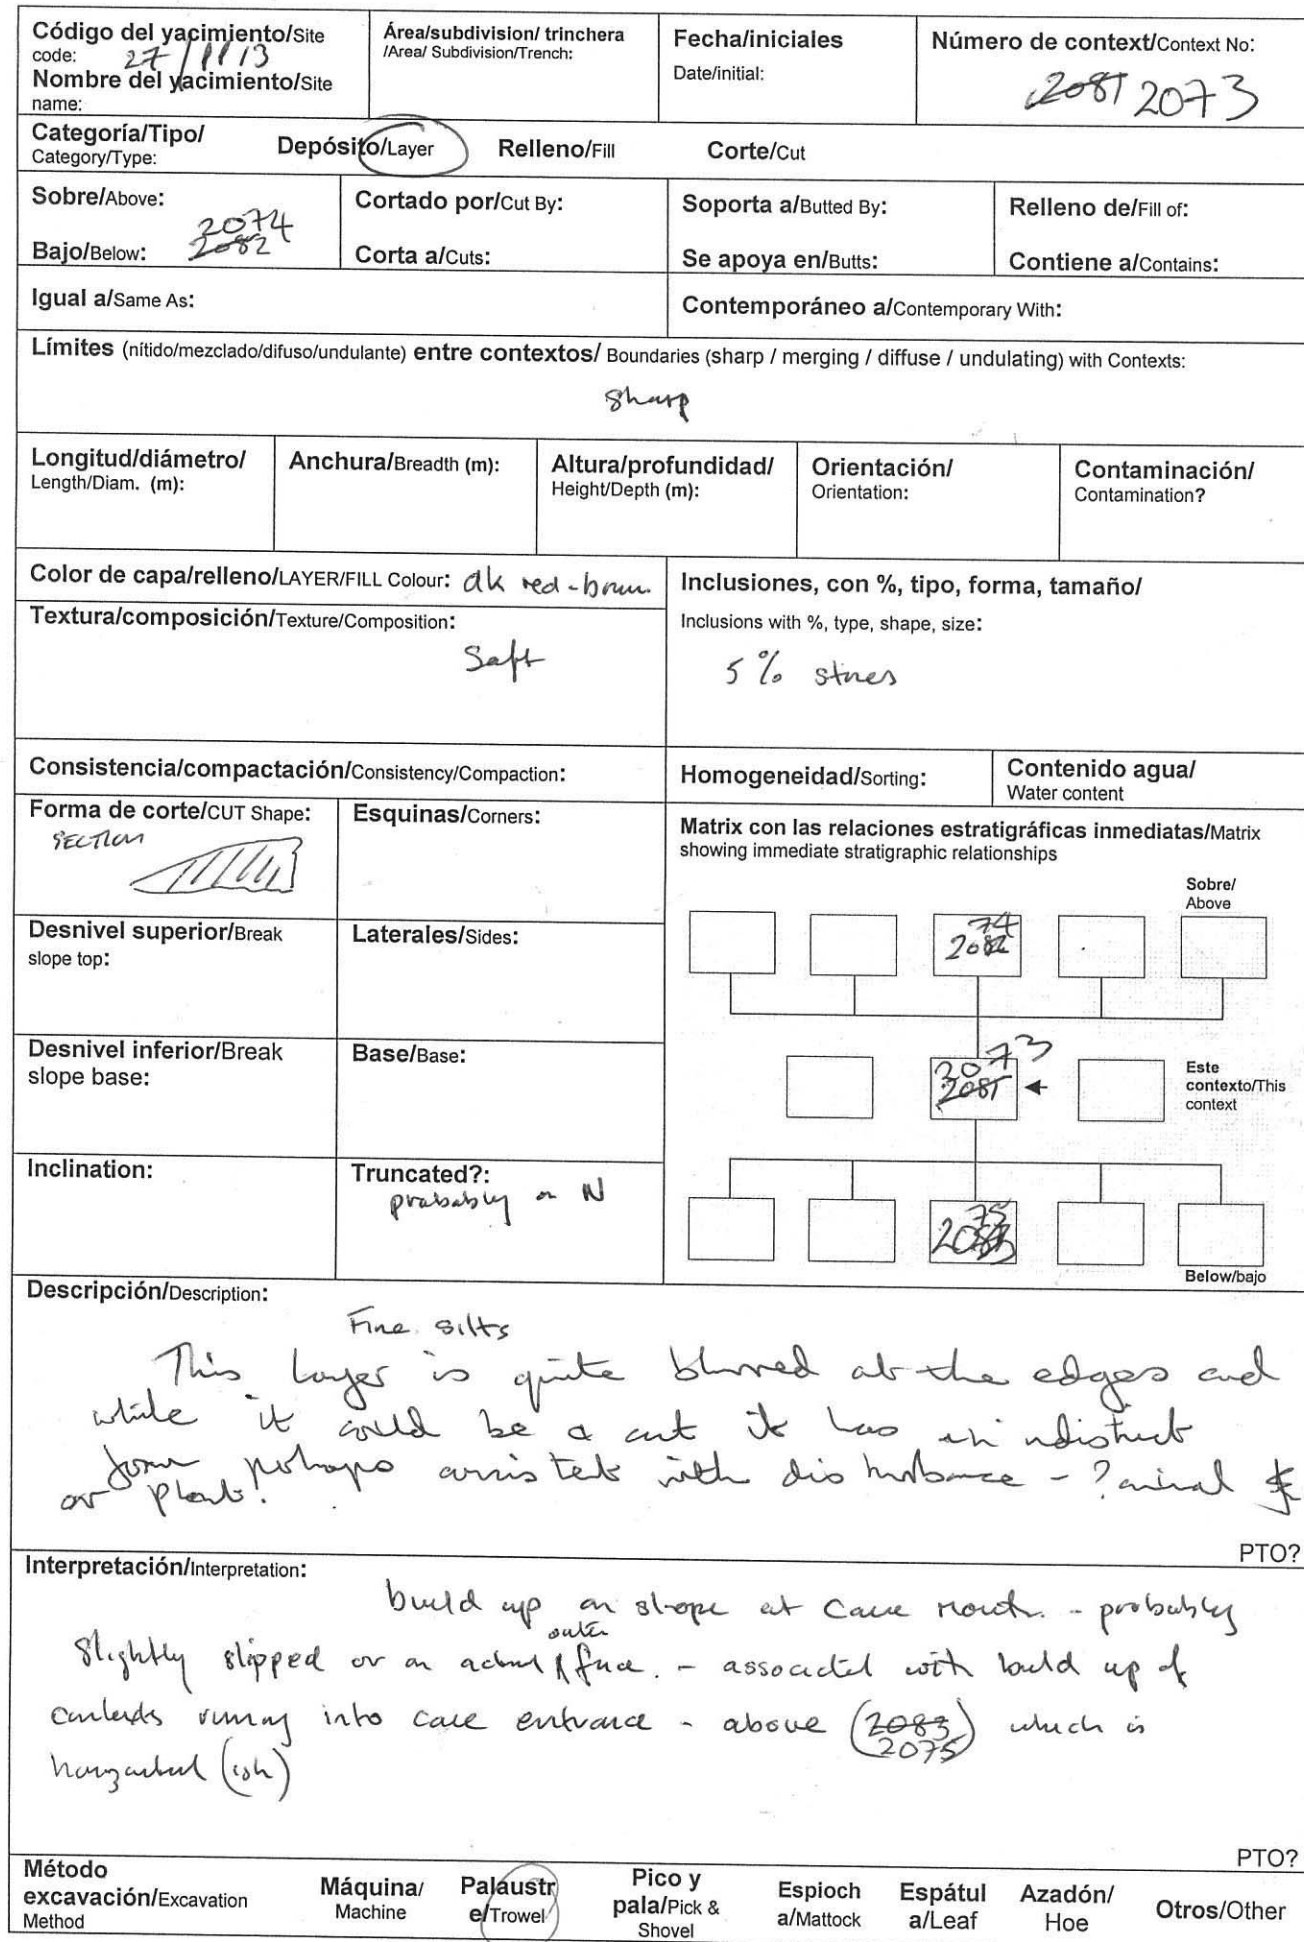 Código del yacimiento/Site
code: 27/11/13
Nombre del yacimiento/Site
name:
Área/subdivision/ trinchera
/Area/ Subdivision/Trench:
Fecha/iniciales
Date/initial:
Número de context/Context No:
2081 2073
Categoría/Tipo/
Category/Type:
Depósito/Layer
Relleno/Fill
Corte/Cut
Sobre/Above:
2074
Bajo/Below: 2082
Cortado por/Cut By:
Corta a/Cuts:
Soporta a/Butted By:
Se apoya en/Butts:
Relleno de/Fill of:
Contiene a/Contains:
Igual a/Same As:
Contemporáneo a/Contemporary With:
Límites (nítido/mezclado/difuso/undulante) entre contextos/ Boundaries (sharp / merging / diffuse / undulating) with Contexts:
sharp
Longitud/diámetro/
Length/Diam. (m):
Anchura/Breadth (m):
Altura/profundidad/
Height/Depth (m):
Orientación/
Orientation:
Contaminación/
Contamination?
Color de capa/relleno/LAYER/FILL Colour: dk red-brown
Textura/composición/Texture/Composition:
Soft
Inclusiones, con %, tipo, forma, tamaño/
Inclusions with %, type, shape, size:
5% stones
Consistencia/compactación/Consistency/Compaction:
Homogeneidad/Sorting:
Contenido agua/
Water content
Forma de corte/CUT Shape:
SECTION
Esquinas/Corners:
Desnivel superior/Break
slope top:
Laterales/Sides:
Desnivel inferior/Break
slope base:
Base/Base:
Inclination:
Truncated?:
probably on N
Matrix con las relaciones estratigráficas inmediatas/Matrix
showing immediate stratigraphic relationships
Sobre/
Above
74
2082
2073
2081
Este
contexto/This
context
75
2083
Below/bajo
Descripción/Description:
Fine silts
This layer is quite blurred at the edges and
while it could be a cut it has an indistinct
form perhaps consistent with disturbance - ? animal
or plant!
PTO?
Interpretación/Interpretation:
build up on slope at cave mouth. - probably
outer
slightly slipped or on actual face. - associated with build up of
contexts running into cave entrance - above (2083) which is
2075
horizontal (ish)
PTO?
Método
excavación/Excavation
Method
Máquina/
Machine
Palaustr
e/Trowel
Pico y
pala/Pick &
Shovel
Espioch
a/Mattock
Espátul
a/Leaf
Azadón/
Hoe
Otros/Other